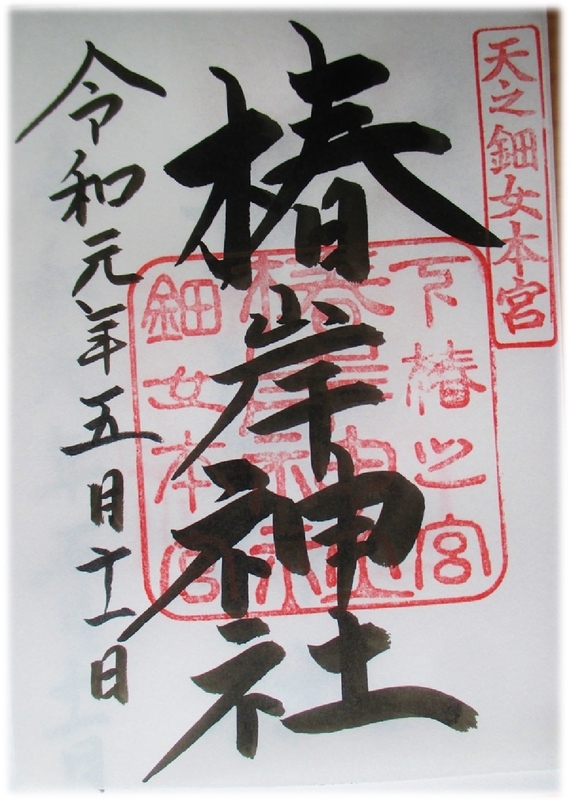 天之鈿女本宮
下椿之宮
椿岸神社
鈿女本宮
椿岸神社
令和元年五月十一日